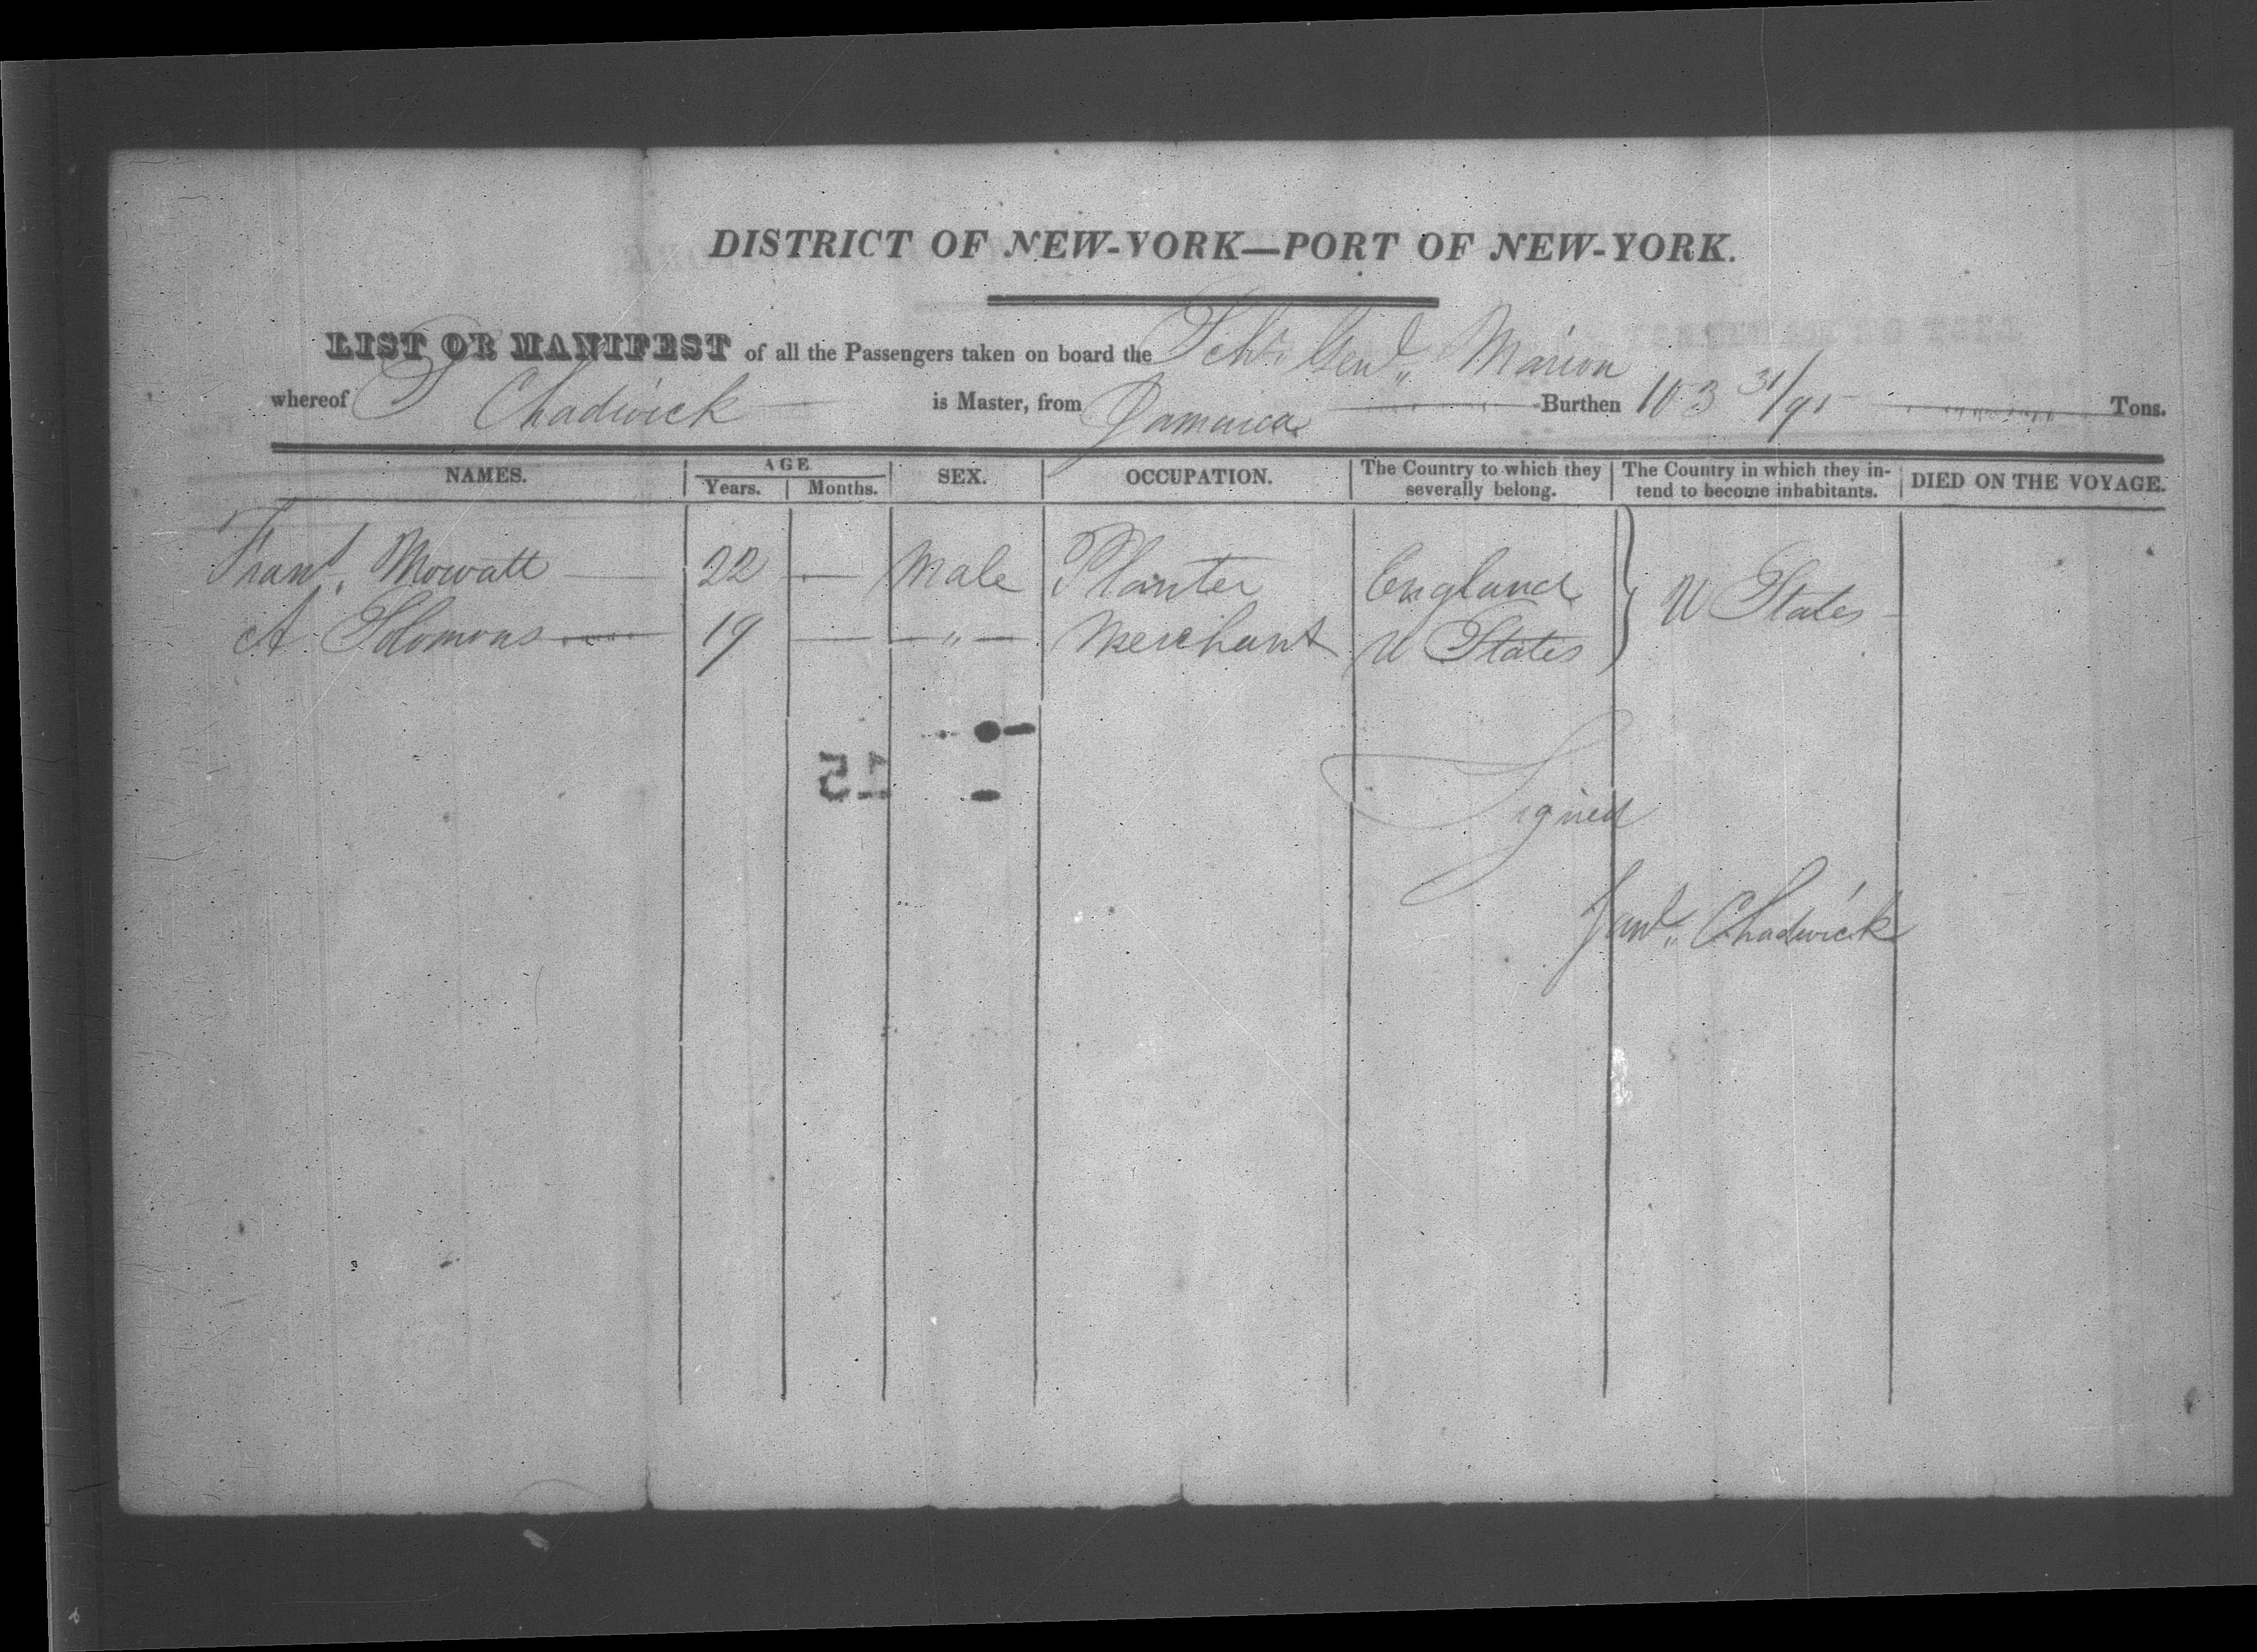 DISTRICT OF NEW-YORK—PORT OF NEW-YORK.
LIST OR MANIFEST of all the Passengers taken on board the Schr. Genl. Marion
whereof Chadwick is Master, from Jamaica Burthen 103 31/95 Tons.
NAMES. AGE. SEX. OCCUPATION. The Country to which they severally belong. The Country in which they in-tend to become inhabitants. DIED ON THE VOYAGE.
Years. Months.
Mowatt — 22 — Male Planter England } U States
A Solomons — 19 — " — Merchant U States
15
Signed
Chadwick